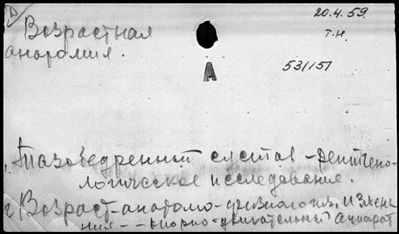 D
20.4.59.
Возрастная
т.н.
анатомия.
A
531151
1. Тазобедренный сустав - рентгено-
логическое исследование.
2. Возраст-анатомо-физиологич. измене
ния -- опорно-двигательный аппарат